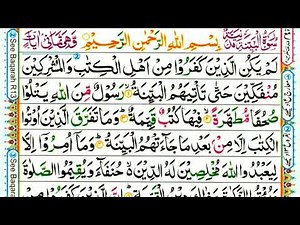 بِسْمِ اللهِ الرَّحْمٰنِ الرَّحِيْمِ
لَمْ يَكُنِ الَّذِيْنَ كَفَرُوْا مِنْ اَهْلِ الْكِتٰبِ وَالْمُشْرِكِيْنَ
مُنْفَكِّيْنَ حَتّٰى تَاْتِيَهُمُ الْبَيِّنَةُ رَسُوْلٌ مِّنَ اللهِ يَتْلُوْا
صُحُفًا مُّطَهَّرَةً فِيْهَا كُتُبٌ قَيِّمَةٌ وَمَا تَفَرَّقَ الَّذِيْنَ اُوْتُوا
الْكِتٰبَ اِلَّا مِنْۢ بَعْدِ مَا جَآءَتْهُمُ الْبَيِّنَةُ وَمَآ اُمِرُوْٓا اِلَّا
لِيَعْبُدُوا اللهَ مُخْلِصِيْنَ لَهُ الدِّيْنَ حُنَفَآءَ وَيُقِيْمُوا الصَّلٰوةَ